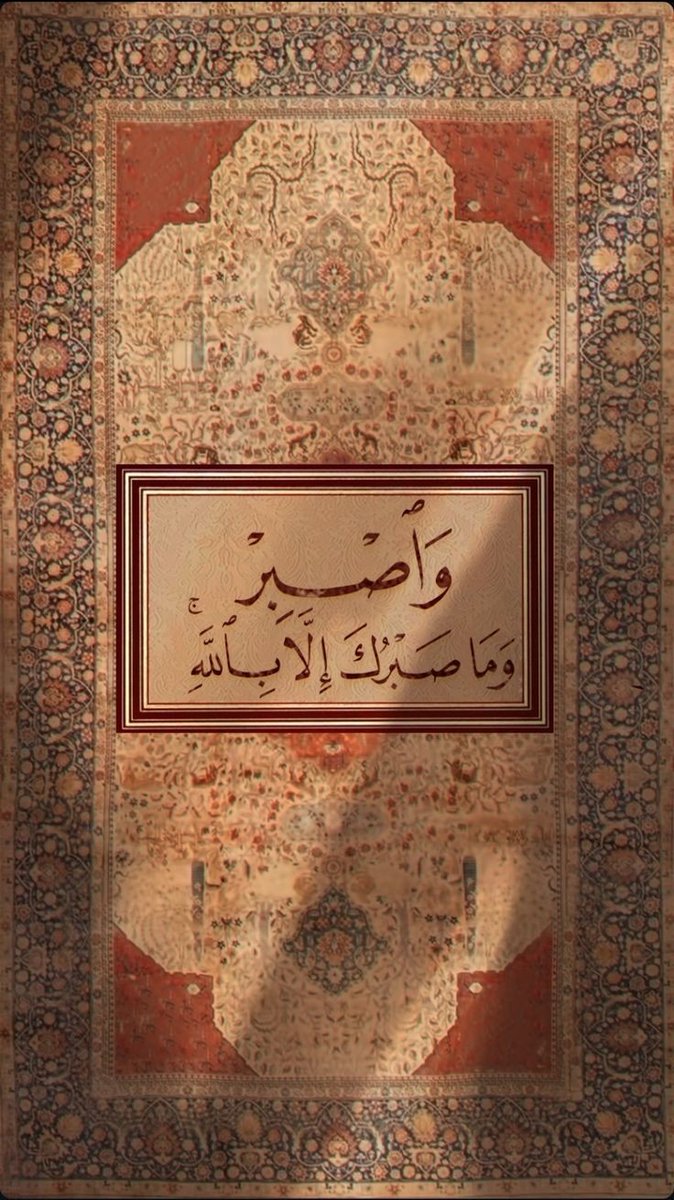 وَٱصْبِرْ
وَمَا صَبْرُكَ إِلَّا بِٱللَّهِۚ